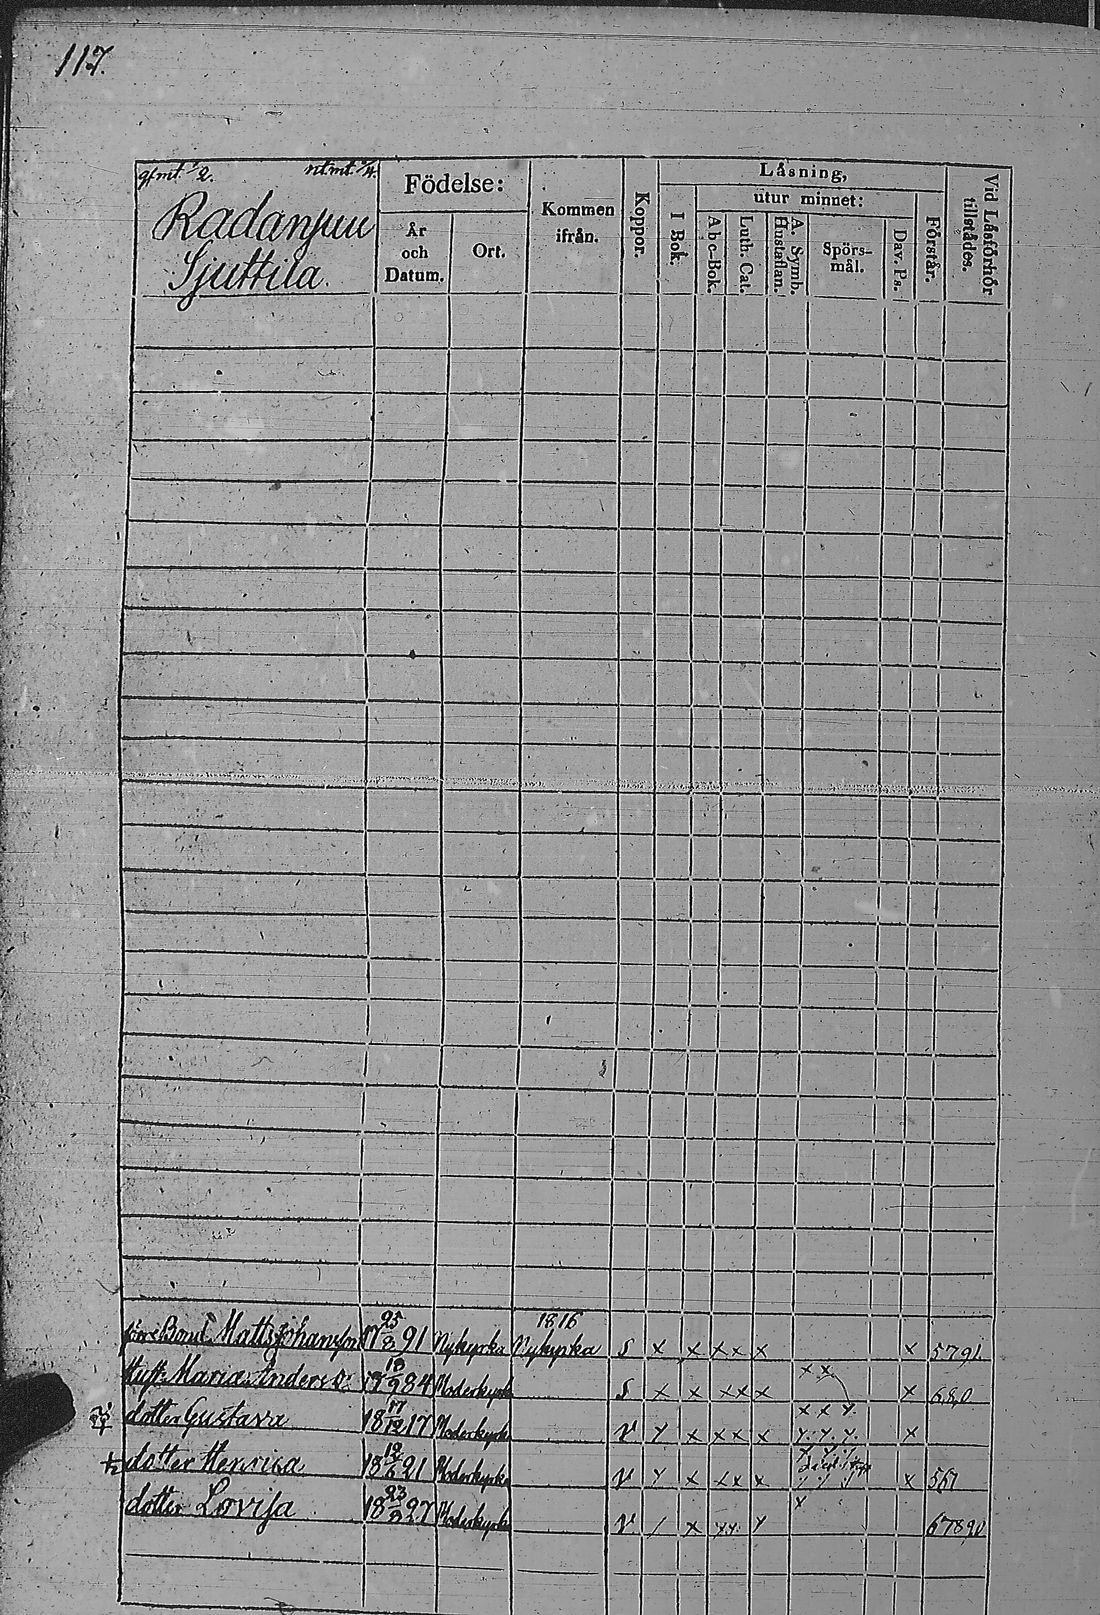 117.
gfmt. 1/2. ntmt. 1/4.
Radanjuu
Sjuttila.
Födelse:
År och Datum.
Ort.
Kommen ifrån.
Koppor.
Läsning,
I Bok.
utur minnet:
Abc-Bok.
Luth. Cat.
A. Symb. Hustaflan.
Spörs-mål.
Dav. Ps.
Förstår.
Vid Läsförhör tillstädes.
Matts Johansson 17 25/8 91 Nykyrka 1816 Nykyrka S x x x x x x 5791
Maria Anders Dr 17 84 Moderkyrka S x x x x x x x x 680
dotter Gustava 18 17/12 17 Moderkyrka V x x x x x x x
dotter Henrica 18 12/6 21 Moderkyrka V x x x x x 561
dotter Lovisa 18 23 27 Moderkyrka V / x x 67890